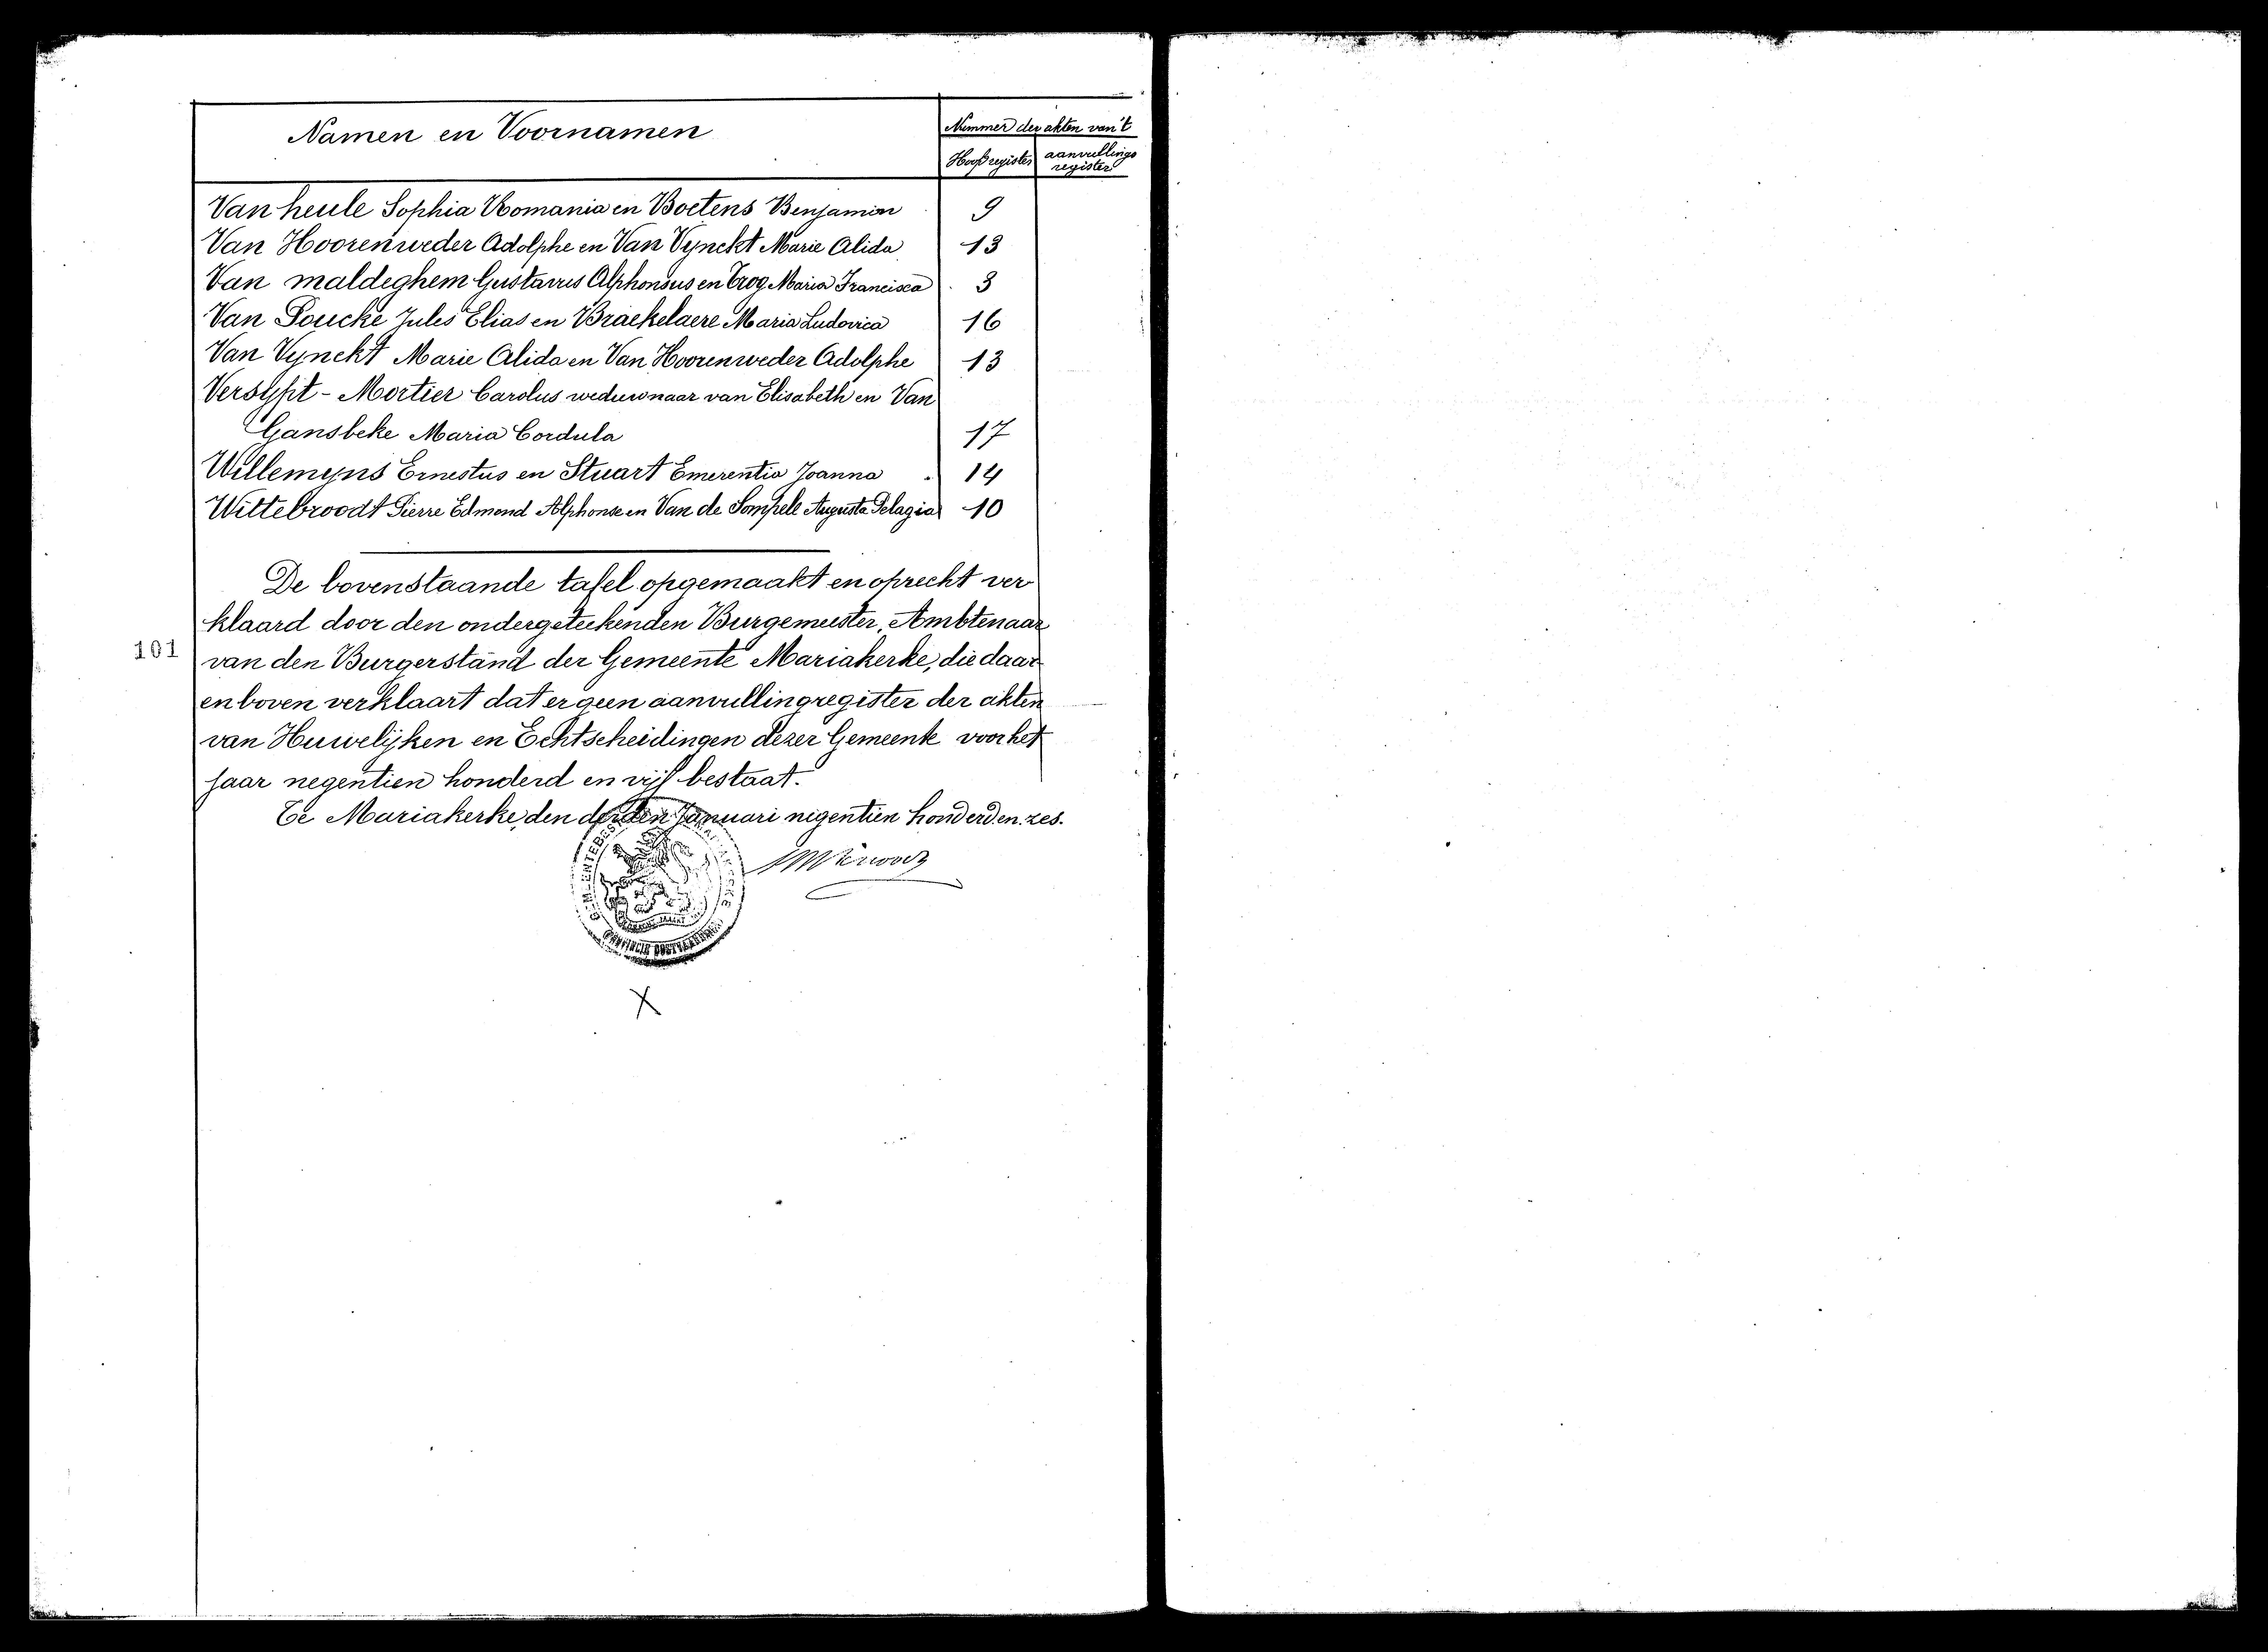 Namen en Voornamen
Nummer der akten van 't
Hoofdregister aanvullings
register
Van heule Sophia Romania en Boetens Benjamin 9
Van Hoorenweder Adolphe en Van Vynckt Marie Alida 13
Van maldeghem Gustavus Alphonsus en Trog Maria Francisca 3
Van Poucke Jules Elias en Braekelaere Maria Ludovica 16
Van Vynckt Marie Alida en Van Hoorenweder Adolphe 13
Versypt - Mortier Carolus weduwnaar van Elisabeth en Van
Gansbeke Maria Cordula 17
Willemyns Ernestus en Stuart Emerentia Joanna 14
Wittebroodt Pierre Edmond Alphonse en Van de Sompele Augusta Pelagia 10
De bovenstaande tafel opgemaakt en oprecht ver
klaard door den ondergeteekenden Burgemeester, Ambtenaar
101
van den Burgerstand der Gemeente Mariakerke, die daar
en boven verklaart dat er geen aanvullingregister der akten
van Huwelijken en Echtscheidingen dezer Gemeente voor het
jaar negentien honderd en vijf bestaat.
Te Mariakerke, den derden Januari negentien honderd en zes.
PROVINCIE OOSTVLAANDEREN
X